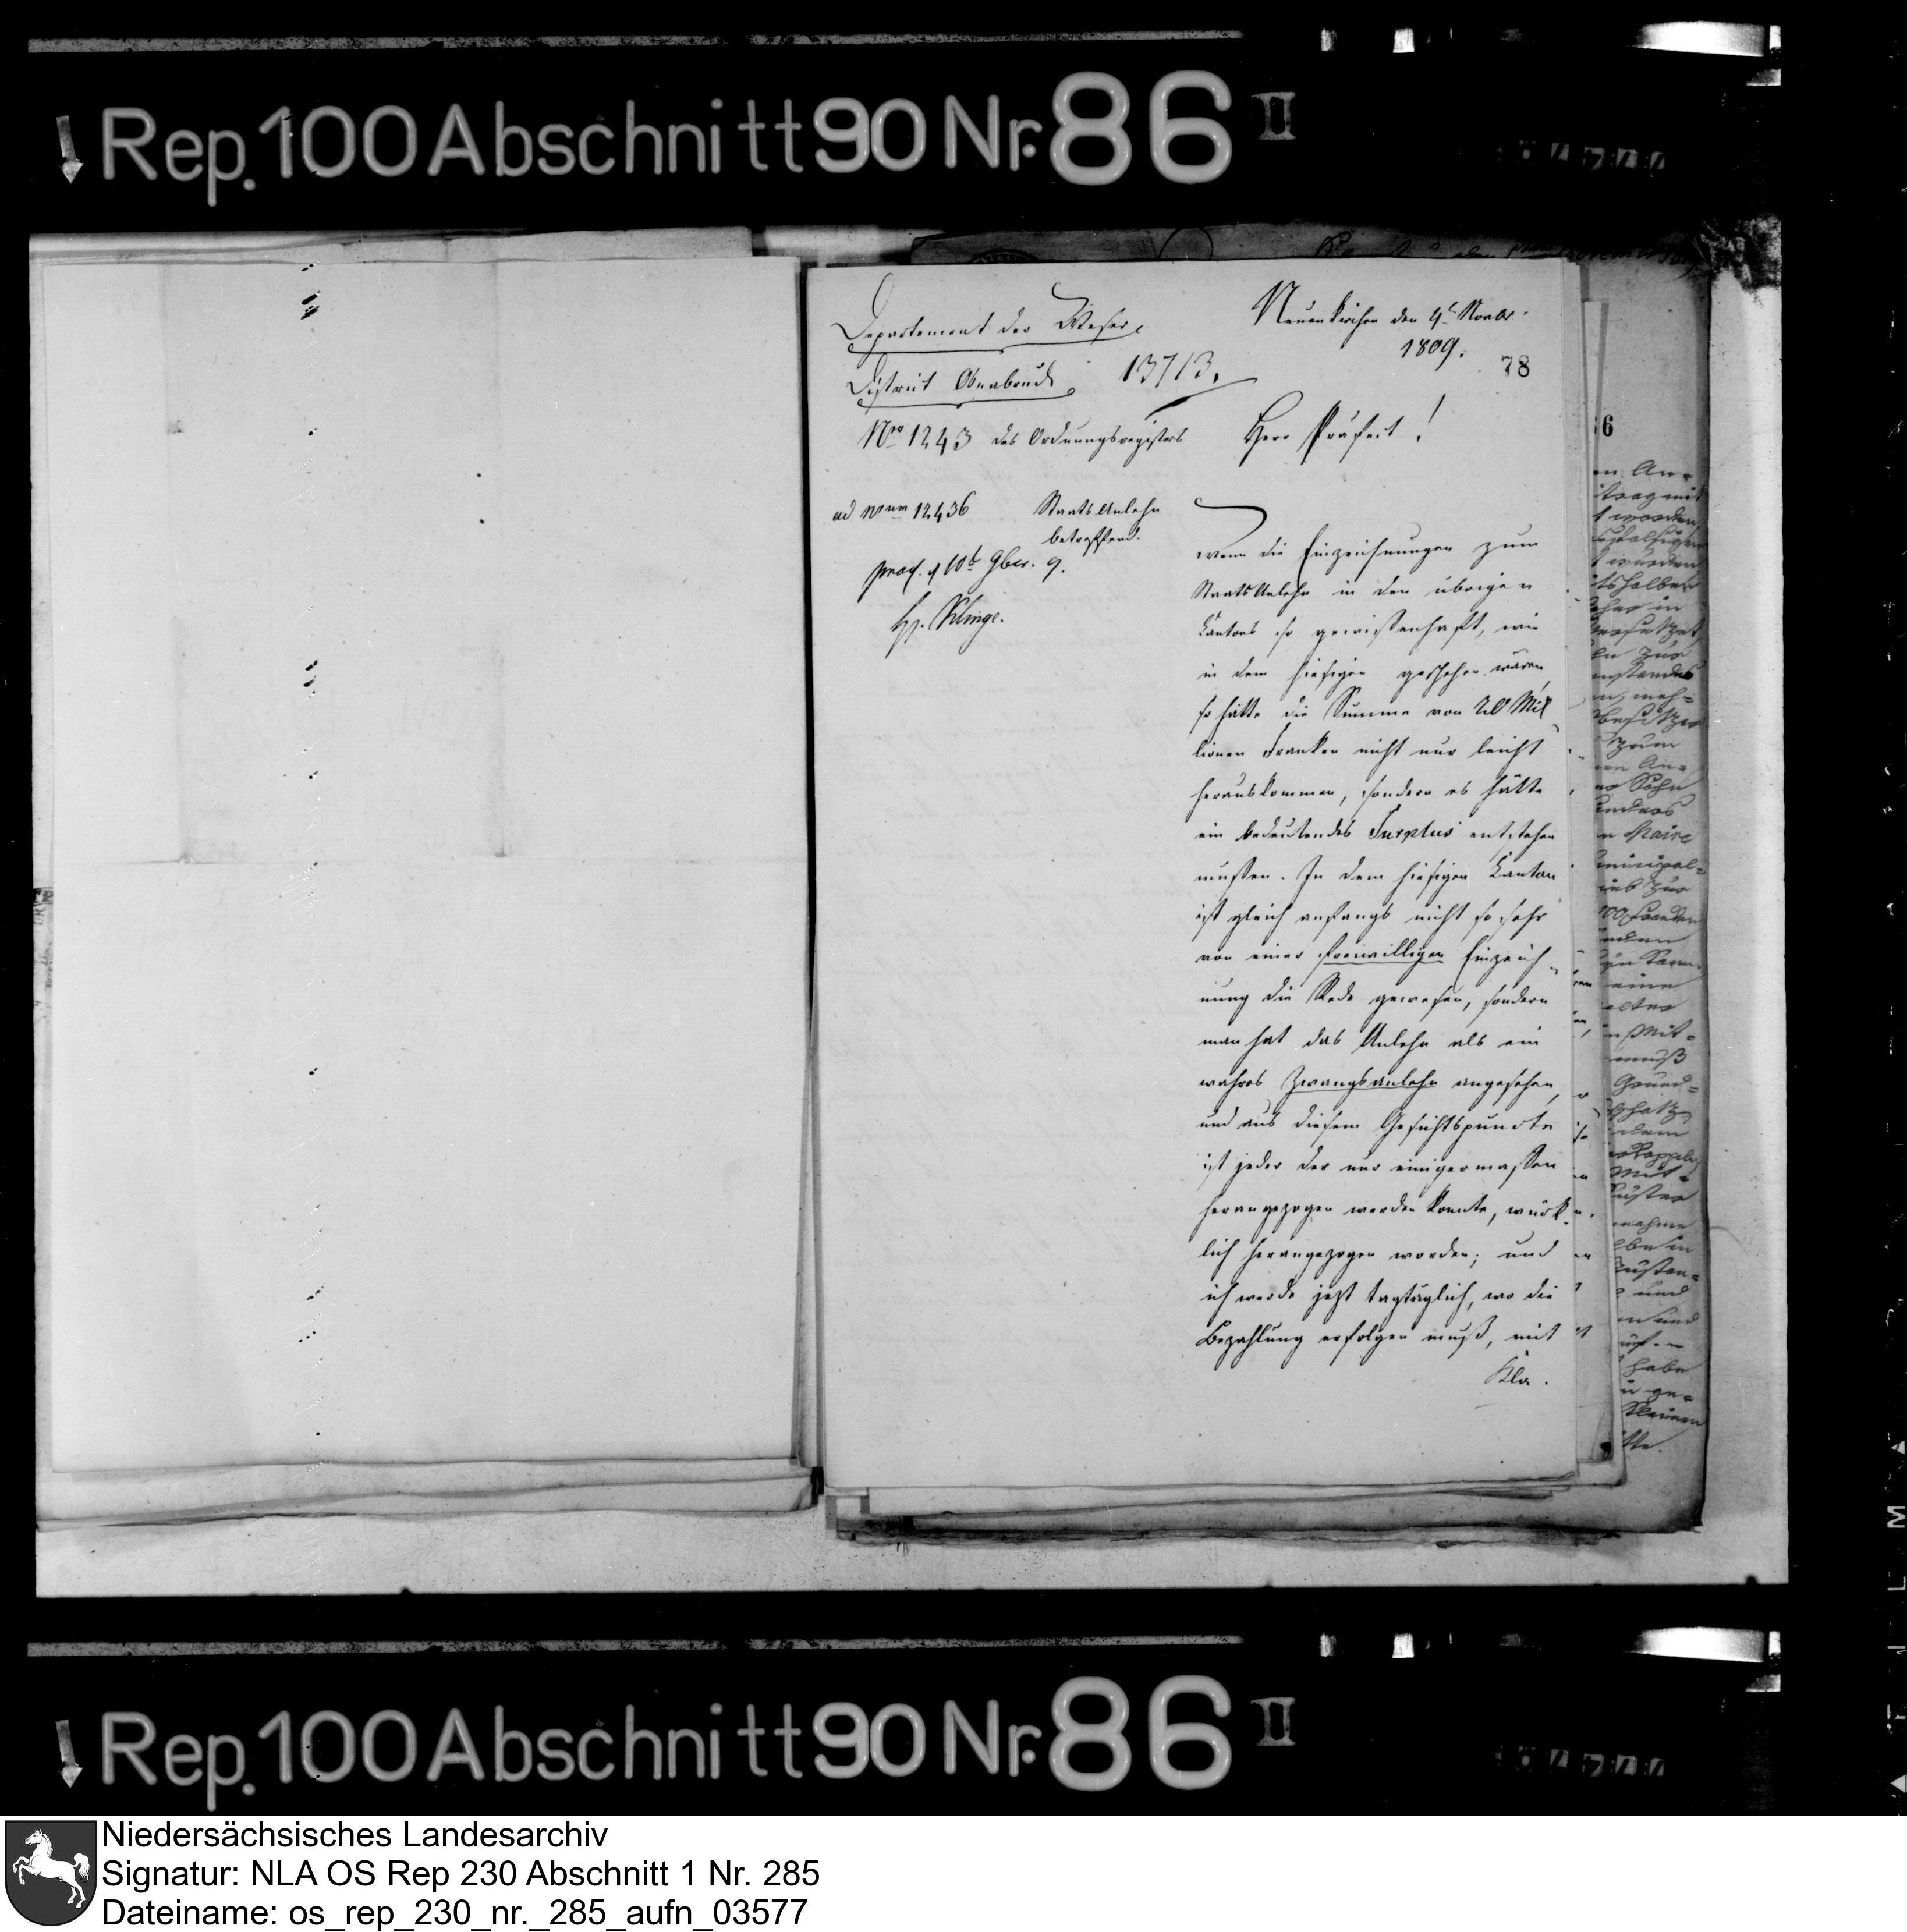 Rep. 100 Abschnitt 90 Nr. 86 II
Departement der Weser
District Osnabrück 13713.
Nro 1243 des Ordnungsregisters
Neuenkirchen den 4t Novbr.
1809.
78
Herr Präfect!
ad Nrum 12436
StaatsAnlehn
betreffend.
praes. d 10t 9ber. 9.
H. Klinge.
Wenn die Einzeichnungen zum
StaatsAnlehn in den übrigen
Cantons so gewissenhaft, wie
in dem hiesigen geschehen wären,
so hätte die Summe von 20 Mil
lionen Franken nicht nur leicht
herauskommen, sondern es hätte
ein bedeutendes Surplus entstehen
müssen. In dem hiesigen Canton
ist gleich anfangs nicht so sehr
von einer freiwilligen Einzeich
nung die Rede gewesen, sondern
man hat das Anlehn als ein
wahres Zwangsanlehn angesehen,
und aus diesem Gesichtspuncte
ist jeder der nur einigermassen
herangezogen werden konnte, würk-
lich herangezogen worden; und
ich werde jezt tagtäglich, wo die
Bezahlung erfolgen muß, mit
Kla.
6
Maire
Rep. 100 Abschnitt 90 Nr. 86 II
Niedersächsisches Landesarchiv
Signatur: NLA OS Rep 230 Abschnitt 1 Nr. 285
Dateiname: os_rep_230_nr._285_aufn_03577